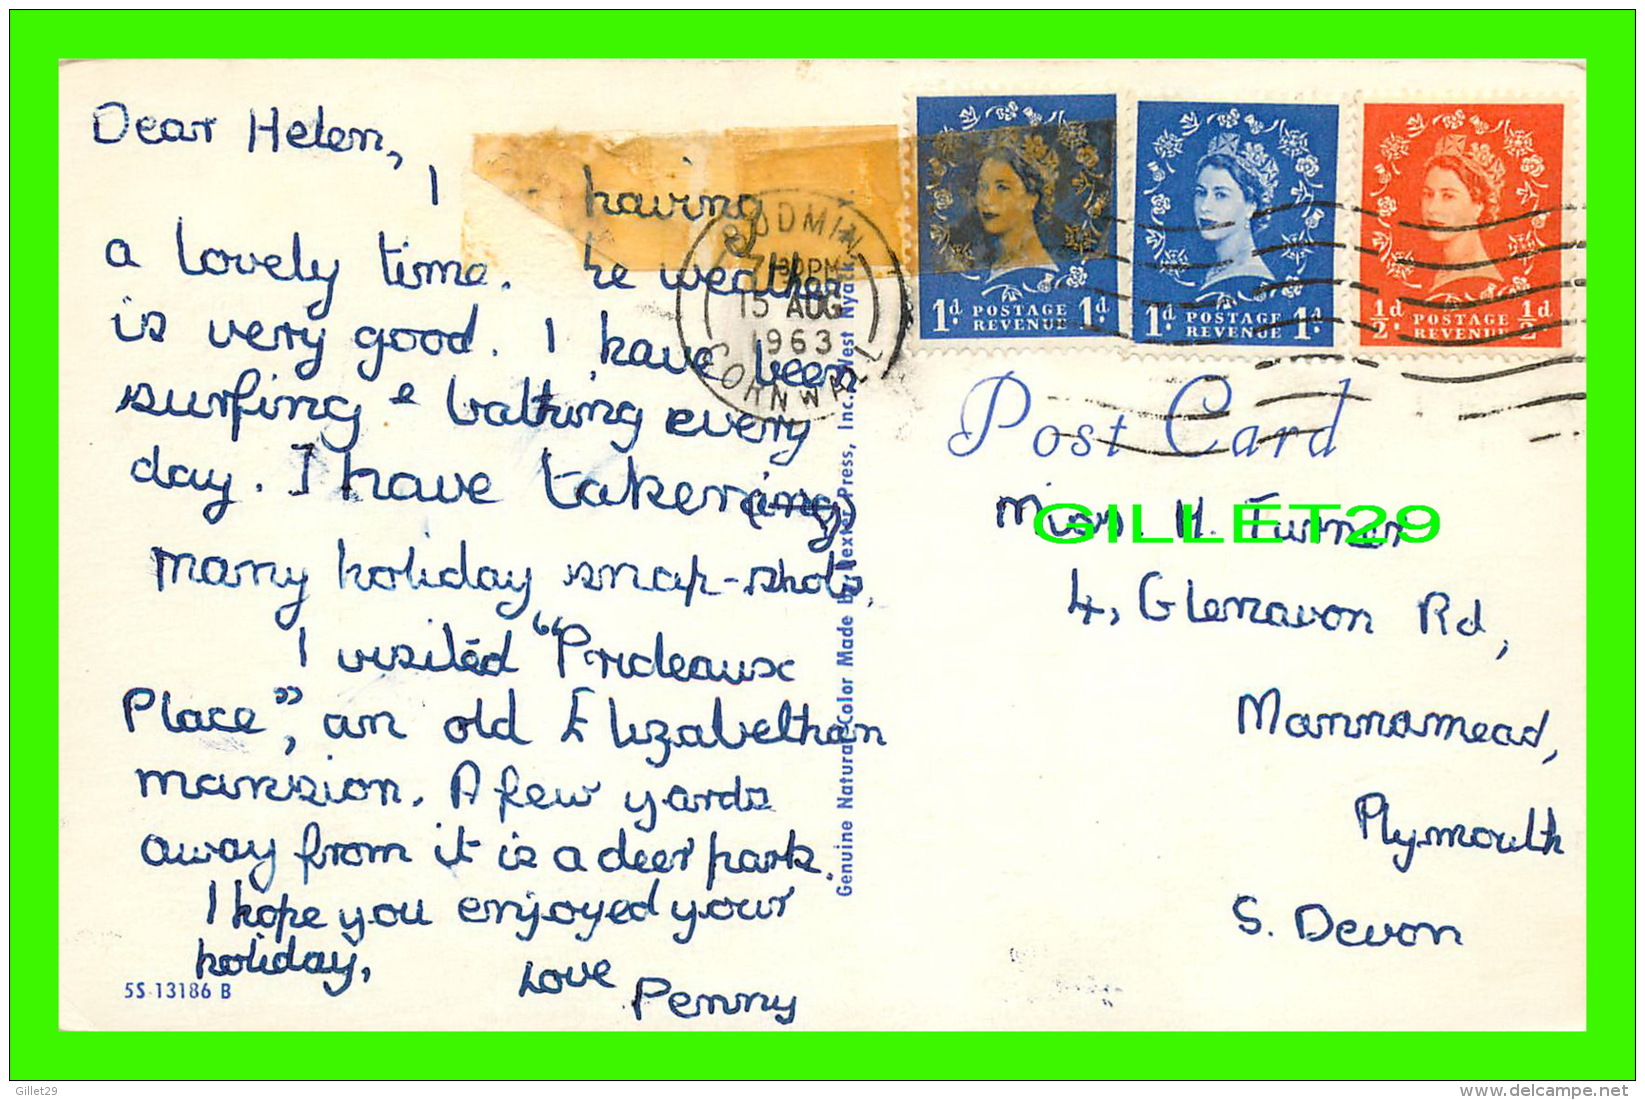 Dear Helen,
I having
a lovely time. he weather
is very good. I have been
surfing & bathing every
day. I have taken (ing)
many holiday snap-shots.
I visited "Prideaux
Place", an old Elizabethan
mansion. A few yards
away from it is a deer park.
I hope you enjoyed your
holiday,
Love
Penny
5S-13186 B
Genuine Natural Color Made by Dexter Press, Inc., West Nyack,
BODMIN
7:30PM
15 AUG
1963
CORNWALL
1d. POSTAGE REVENUE 1d.
1d. POSTAGE REVENUE 1d.
½d. POSTAGE REVENUE ½d.
Post Card
Miss. H. Turner
GILLET29
4, Glenavon Rd,
Mannamead,
Plymouth
S. Devon
Gillet29
delcampe.net